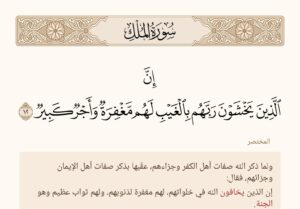 سُورَةُ المُلْكِ
إِنَّ
الَّذِينَ يَخْشَوْنَ رَبَّهُم بِالْغَيْبِ لَهُم مَّغْفِرَةٌ وَأَجْرٌ كَبِيرٌ ١٢
المختصر
ولما ذكر الله صفات أهل الكفر وجزاءهم، عقبها بذكر صفات أهل الإيمان
وجزائهم، فقال:
إن الذين يخافون الله في خلواتهم، لهم مغفرة لذنوبهم، ولهم ثواب عظيم وهو
الجنة.